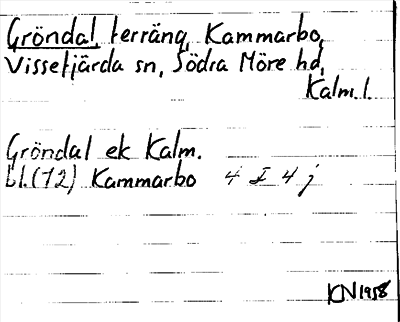 Gröndal, terräng, Kammarbo,
Vissefjärda sn, Södra Möre hd,
Kalm. l.
Gröndal ek Kalm.
bl. (72) Kammarbo 4 I 4 j
KN 1958